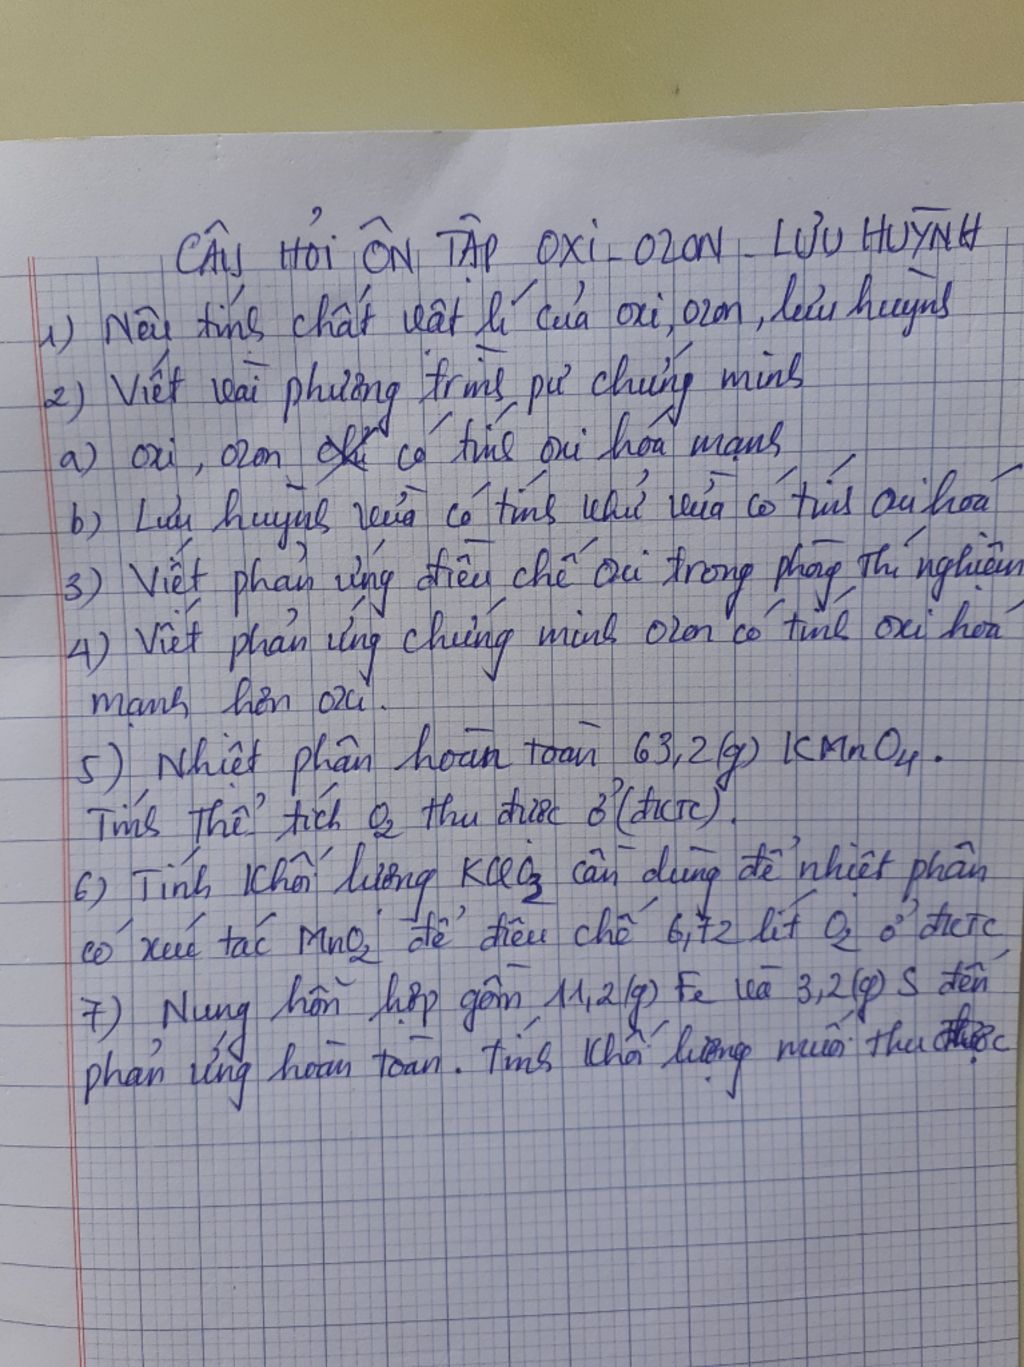 CÂU HỎI ÔN TẬP OXI - OZON - LƯU HUỲNH
1) Nêu tính chất vật lí của oxi, ozon, lưu huỳnh
2) Viết vài phương trình pư chứng minh
a) oxi, ozon có tính oxi hóa mạnh
b) Lưu huỳnh vừa có tính khử vừa có tính oxi hoá
3) Viết phản ứng điều chế oxi trong phòng thí nghiệm
4) Viết phản ứng chứng minh ozon có tính oxi hoá
mạnh hơn oxi.
5) Nhiệt phân hoàn toàn 63,2(g) KMnO₄.
Tính thể tích O₂ thu được ở (đktc).
6) Tính khối lượng KClO₃ cần dùng để nhiệt phân
có xúc tác MnO₂ để điều chế 6,72 lít O₂ ở đktc
7) Nung hỗn hợp gồm 11,2(g) Fe và 3,2(g) S đến
phản ứng hoàn toàn. Tính khối lượng muối thu được